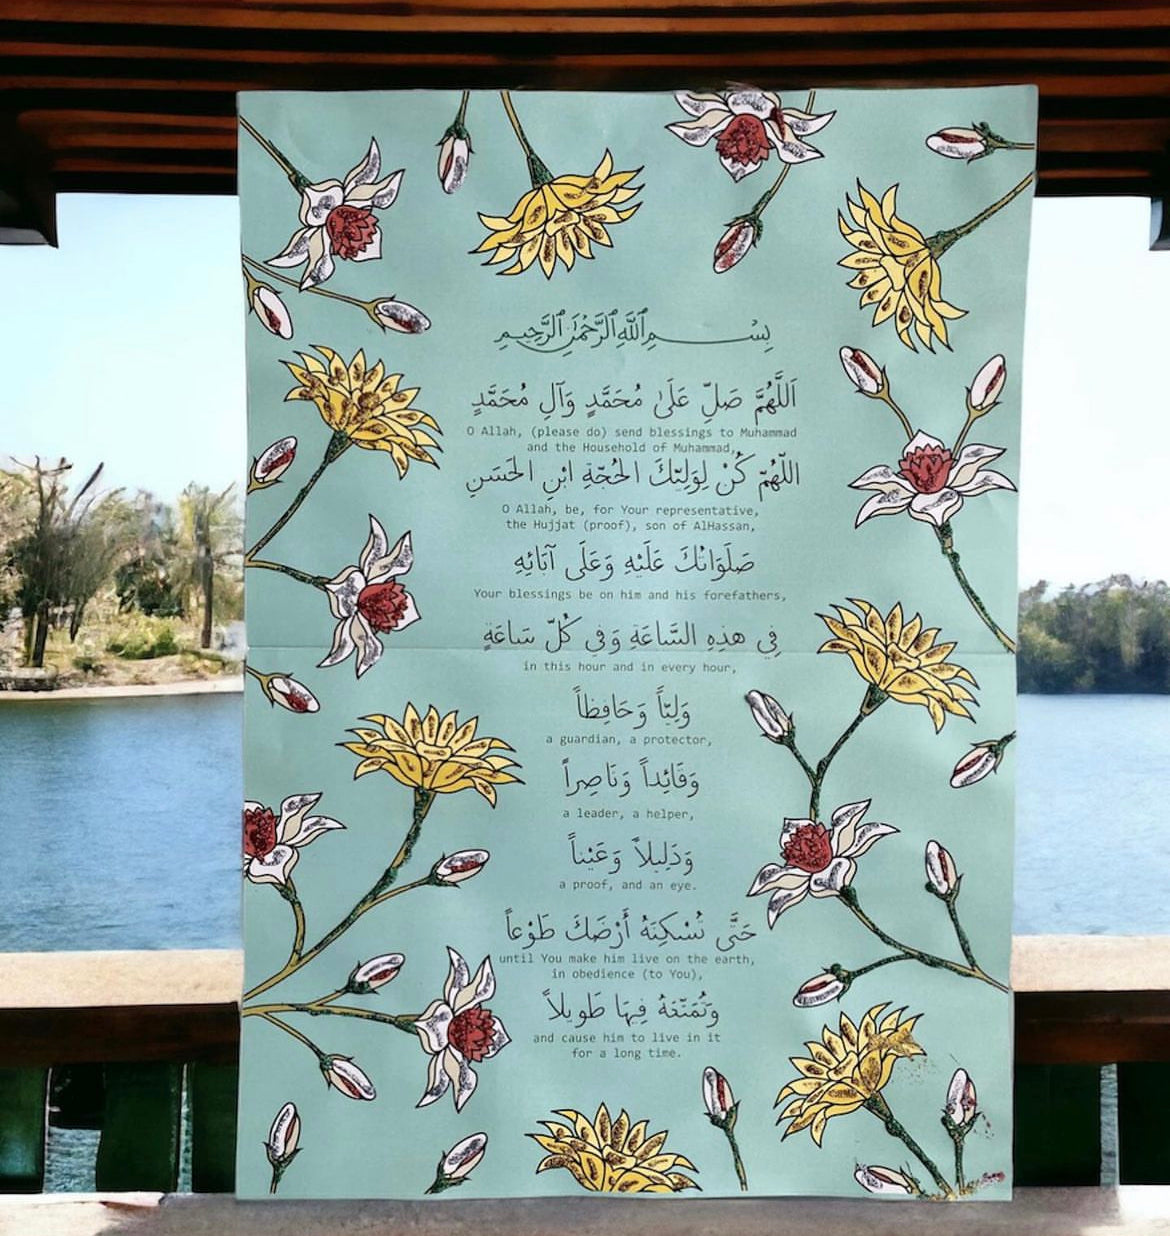 بِسْمِ ٱللَّهِ ٱلرَّحْمَٰنِ ٱلرَّحِيمِ
اَللَّهُمَّ صَلِّ عَلَىٰ مُحَمَّدٍ وَآلِ مُحَمَّدٍ
O Allah, (please do) send blessings to Muhammad
and the Household of Muhammad,
اللّهُمّ كُنْ لِوَلِيِّكَ الحُجّةِ ابْنِ الحَسَنِ
O Allah, be, for Your representative,
the Hujjat (proof), son of AlHassan,
صَلَوَاتُكَ عَلَيْهِ وَعَلَى آبَائِهِ
Your blessings be on him and his forefathers,
فِي هذِهِ السَّاعَةِ وَفِي كُلّ سَاعَةٍ
in this hour and in every hour,
وَلِيّاً وَحَافِظاً
a guardian, a protector,
وَقَائِداً وَنَاصِراً
a leader, a helper,
وَدَلِيلاً وَعَيْناً
a proof, and an eye.
حَتَّى تُسْكِنَهُ أَرْضَكَ طَوْعاً
until You make him live on the earth,
in obedience (to You),
وَتُمَتّعَهُ فِيهَا طَوِيلاً
and cause him to live in it
for a long time.